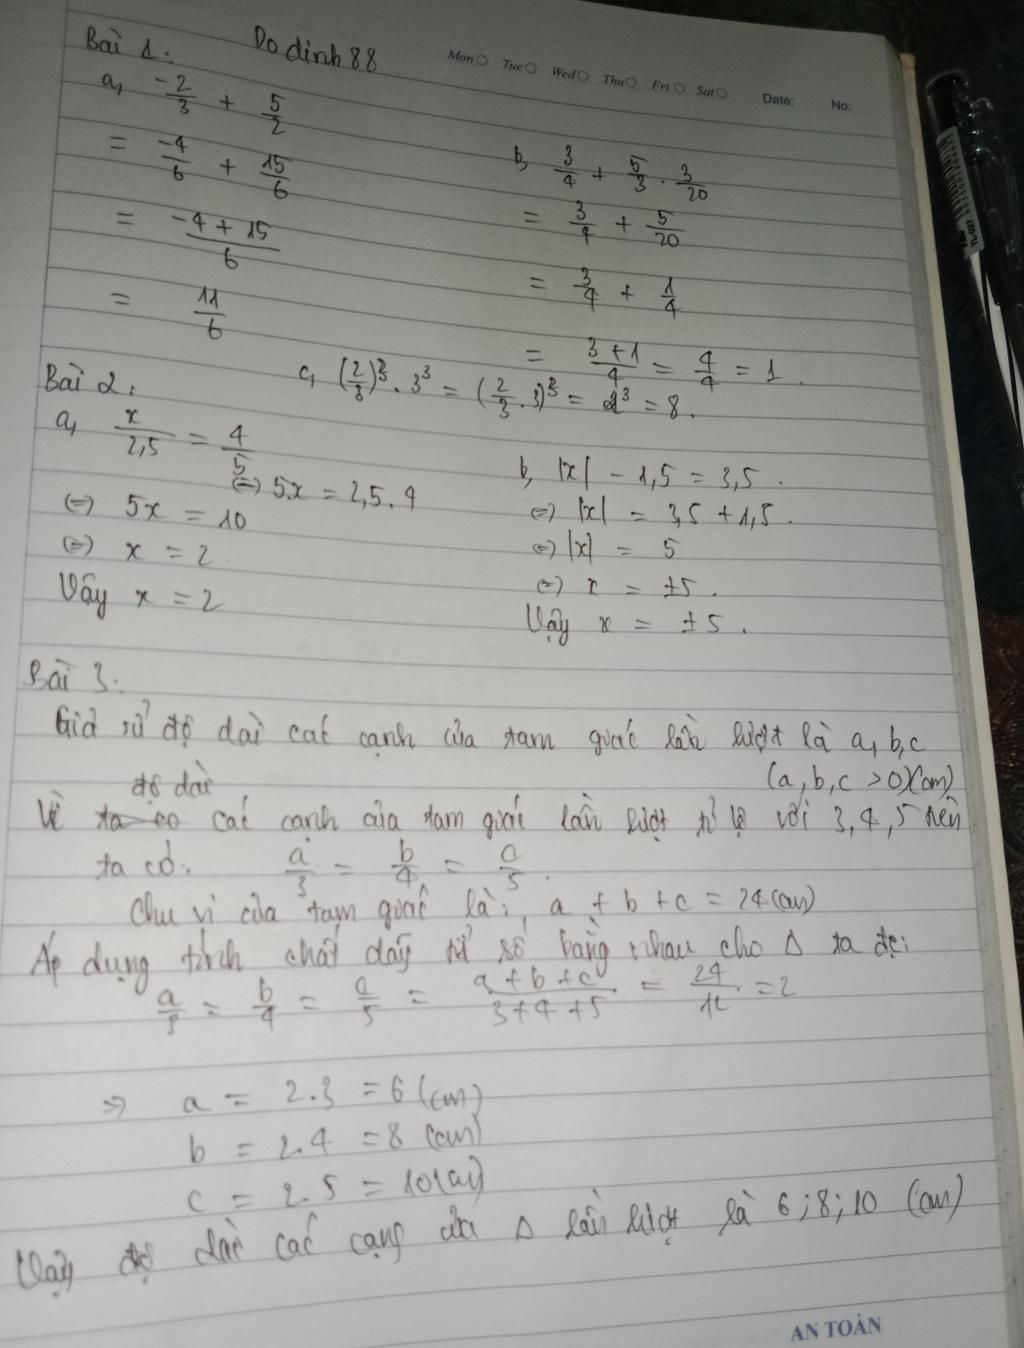 Bài 1: Do dinh 88
Mon Tue Wed Thu Fri Sat Date: No:
a, -2/3 + 5/2
= -4/6 + 15/6
= (-4 + 15)/6
= 11/6
b, 3/4 + 5/3 . 3/20
= 3/4 + 5/20
= 3/4 + 1/4
= (3 + 1)/4 = 4/4 = 1.
c, (2/3)³ . 3³ = (2/3 . 3)³ = 2³ = 8.
Bài 2:
a, x/2,5 = 4/5
(=) 5x = 2,5.4
(=) 5x = 10
(=) x = 2
Vậy x = 2
b, |x| - 1,5 = 3,5.
(=) |x| = 3,5 + 1,5.
(=) |x| = 5
(=) x = ±5.
Vậy x = ±5.
Bài 3:
Giả sử độ dài các cạnh của tam giác lần lượt là a, b, c
(a, b, c > 0)(cm)
độ dài
Vì ta có các cạnh của tam giác lần lượt tỉ lệ với 3, 4, 5 nên
ta có: a/3 = b/4 = c/5.
Chu vi của tam giác là: a + b + c = 24 (cm)
Áp dụng tính chất dãy tỉ số bằng nhau cho Δ ta đc:
a/3 = b/4 = c/5 = (a + b + c)/(3 + 4 + 5) = 24/12 = 2
=> a = 2.3 = 6 (cm)
b = 2.4 = 8 (cm)
c = 2.5 = 10 (cm)
Vậy độ dài các cạng của Δ lần lượt là 6; 8; 10 (cm)
AN TOÀN